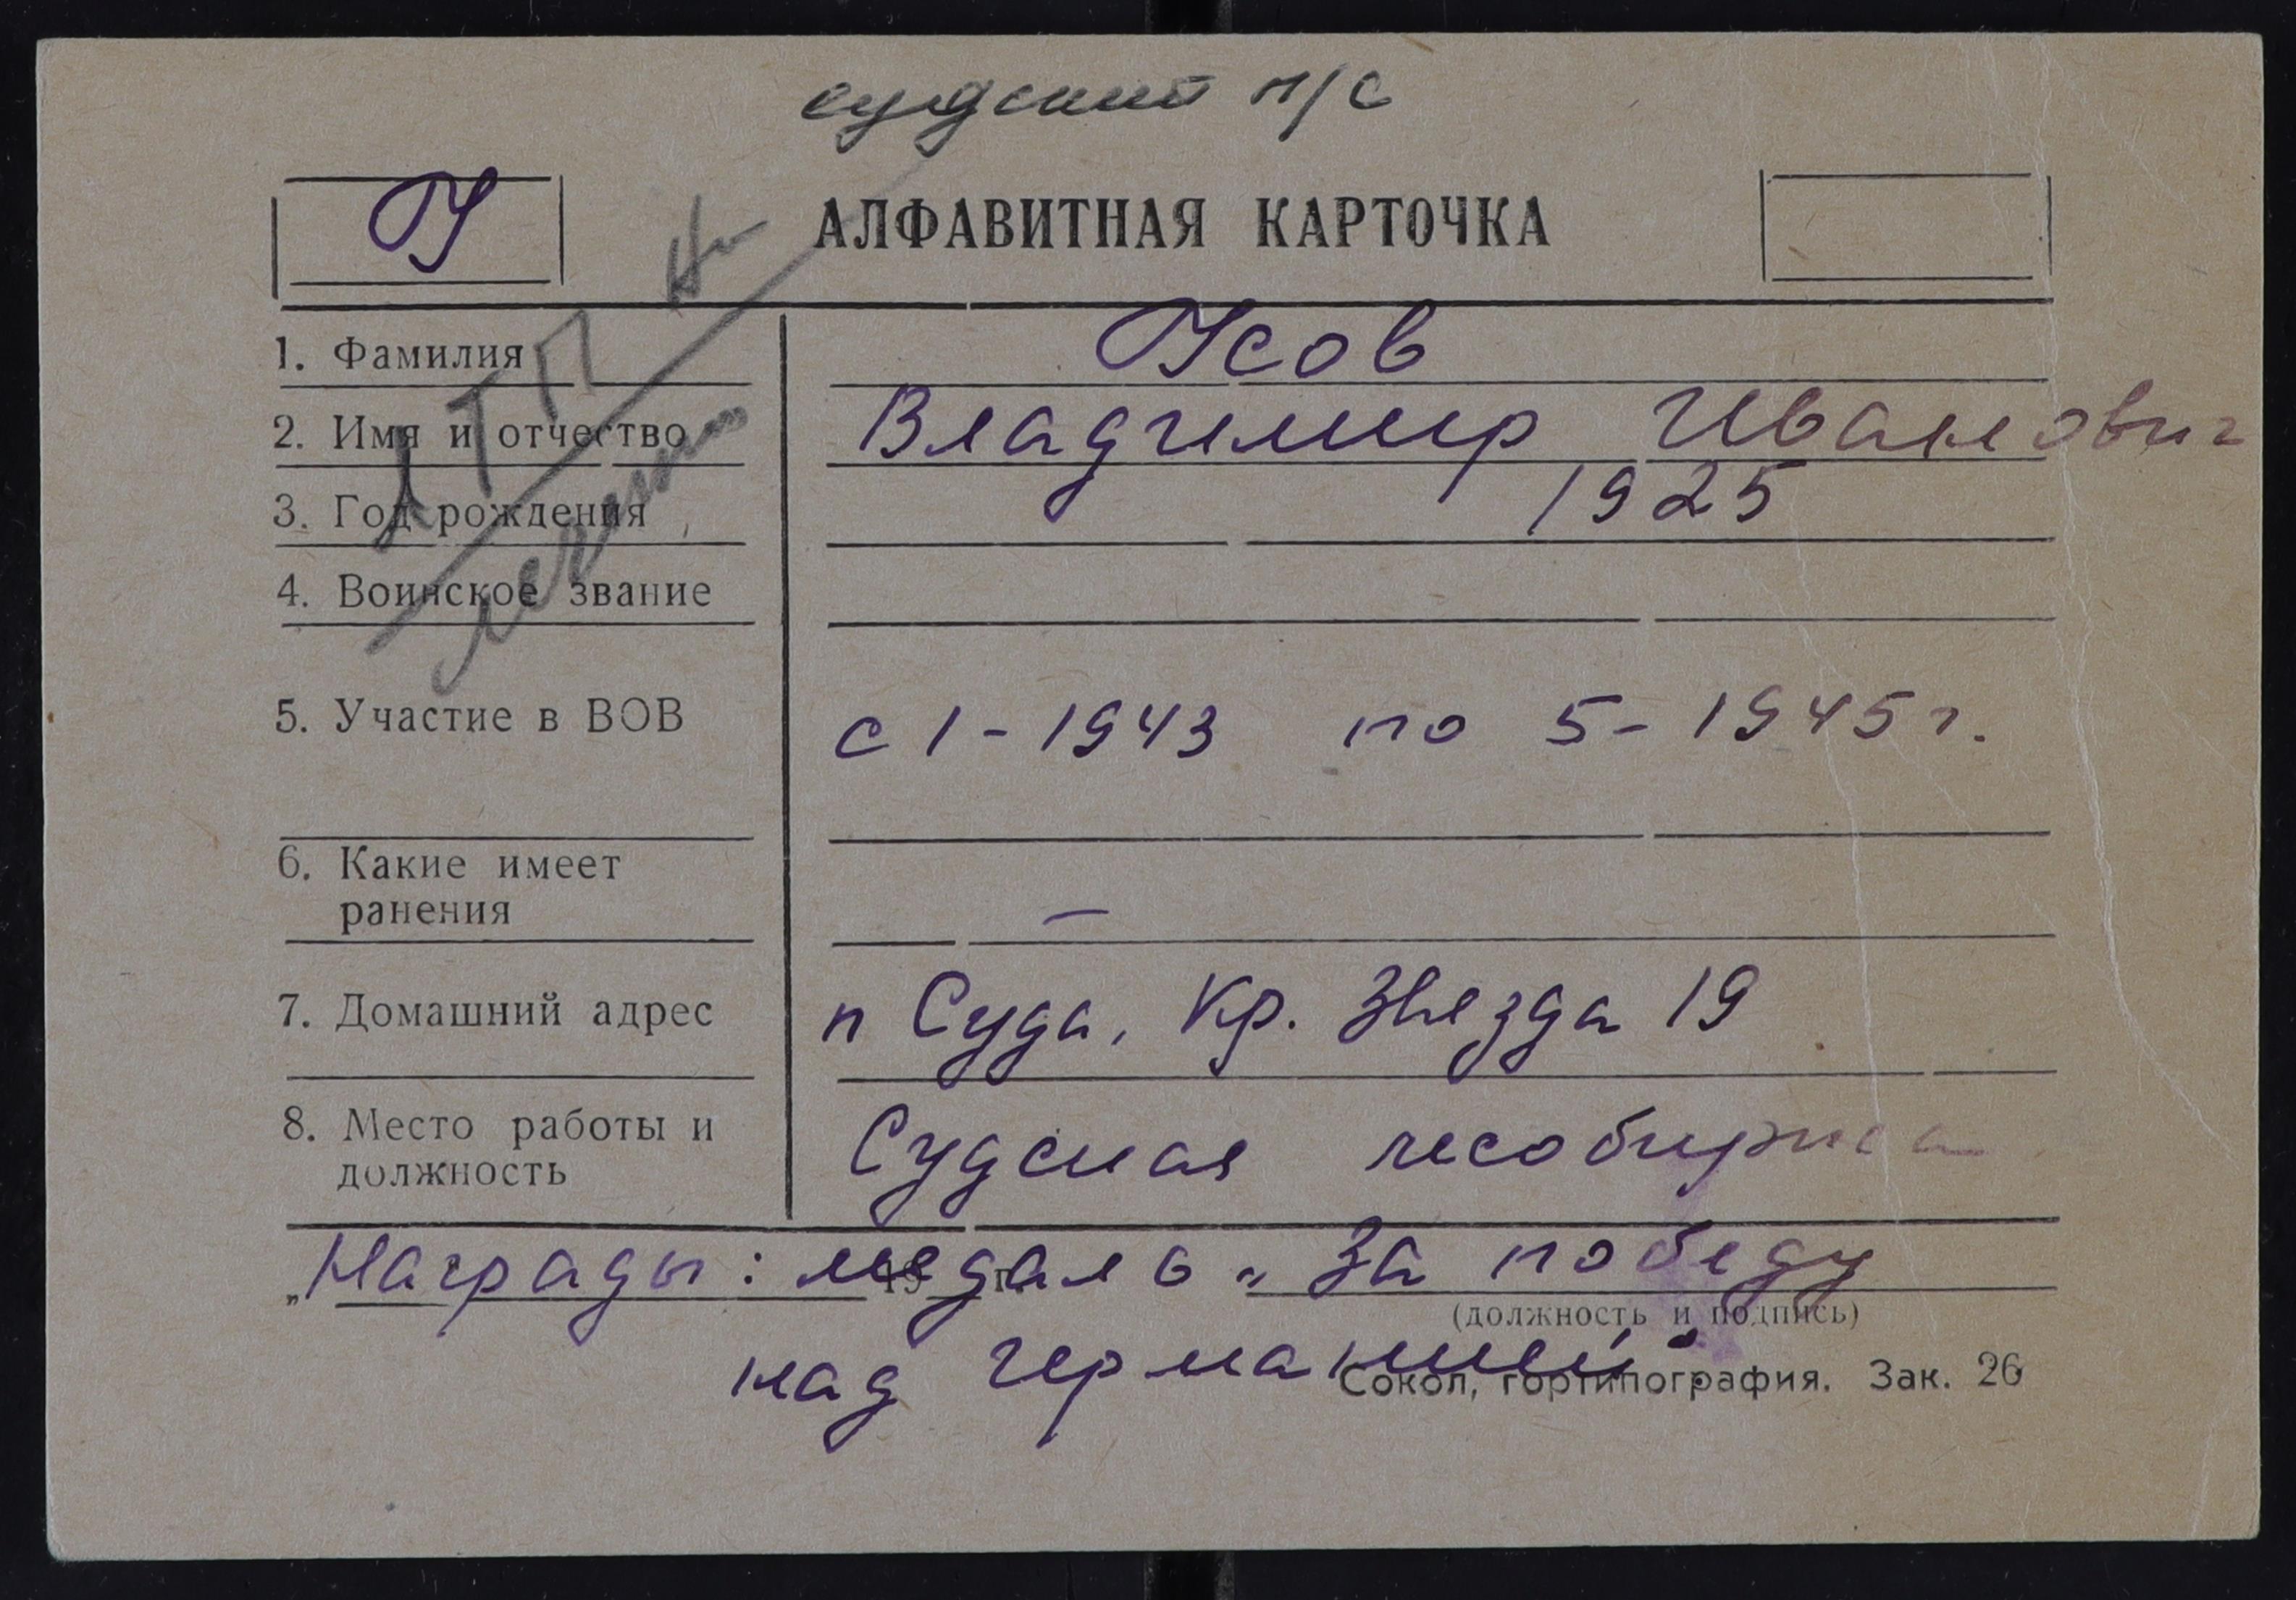 судский п/с
У
АЛФАВИТНАЯ КАРТОЧКА
1. Фамилия Усов
2. Имя и отчество Владимир Иванович
3. Год рождения 1925
4. Воинское звание
5. Участие в ВОВ с 1-1943 по 5-1945 г.
6. Какие имеет
ранения —
7. Домашний адрес п Суда, Кр. Звезда 19
8. Место работы и
должность Судская лесобиржа
Награды: медаль „За победу
(должность и подпись)
над германией"
Сокол, гортипография. Зак. 26